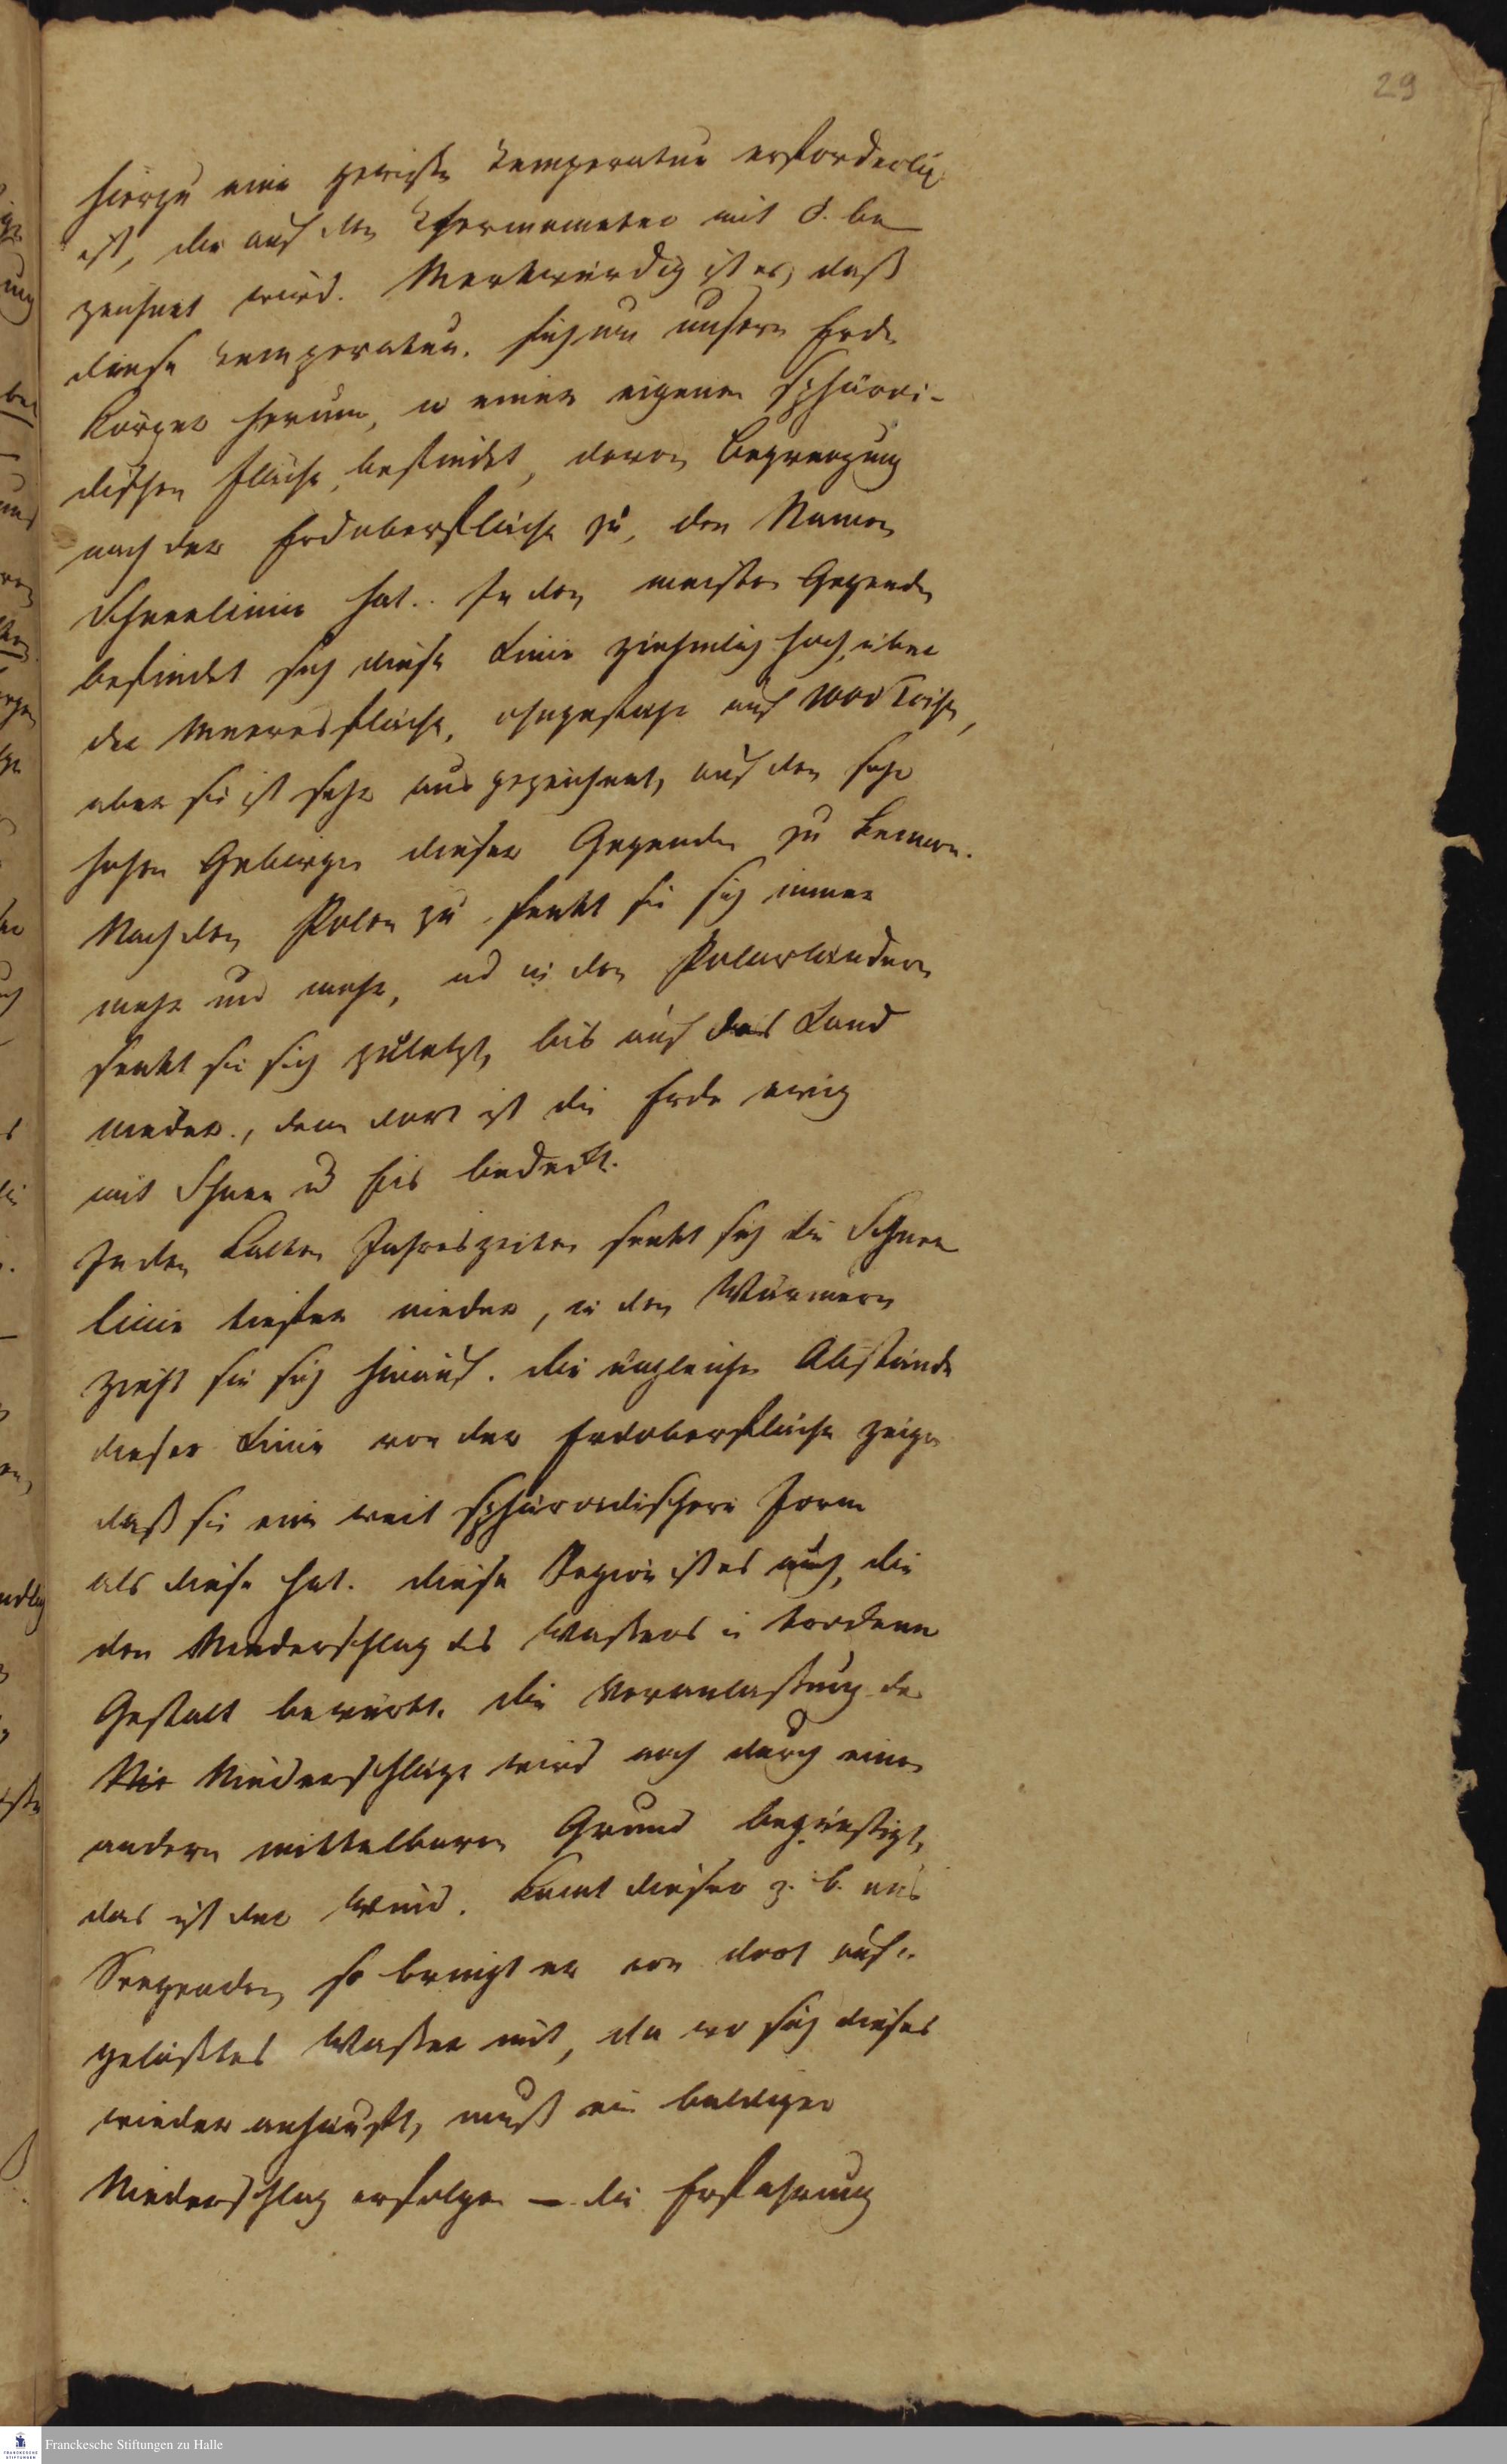 29
hierzu eine gewisse Temperatur erforderlich
ist, die auf den Thermometer mit 0. be
zeichnet wird. Merkwürdig ist es, daß
diese Temperatur. sich um unsern Erd
Körper herum, in einer eigenen sphäroi-
dischen Fläche, befindet, deren Begrenzung
nach der Erdoberfläche zu, den Namen
Schneelinie hat. In den meisten Gegenden
befindet sich diese Linie ziehmlich hoch, über
der Meeresfläche, ohngefähr auf Toisen,
aber sie ist sehr ausgezeichnet, auf den sehr
hohen Gebirgen dieser Gegenden zu kennen.
Nach den Polen zu senkt sie sich immer
mehr und mehr, und in den Polarländern
senkt sie sich zuletzt, bis auf das Land
nieder, denn dort ist die Erde ewig
mit Schnee u Eis bedeckt.
In den kalten Jahreszeiten senkt sich die Schnee
linie tiefer nieder, in den Wärmern
zieht sie sich hinauf. die ungleichen Abstände
dieser Linie von der Erdoberfläche zeigen
daß sie eine weit sphäroidischere Form
als diese hat. diese Region ist es auch, die
den Niederschlag des Wassers in trockener
Gestalt bewirkt. Die Veranlassung der
Nie Niederschläge wird noch durch einen
andern mittelbaren Grund begünstigt,
das ist der Wind. Kömt dieser z. b. aus
Seegenden, so bringt er von dort aufge
gelößtes Wasser mit, da wo sich dieses
wieder anhäuft, muß ein baldiger
Niederschlag erfolgen – die Erfahrung
Franckesche Stiftungen zu Halle